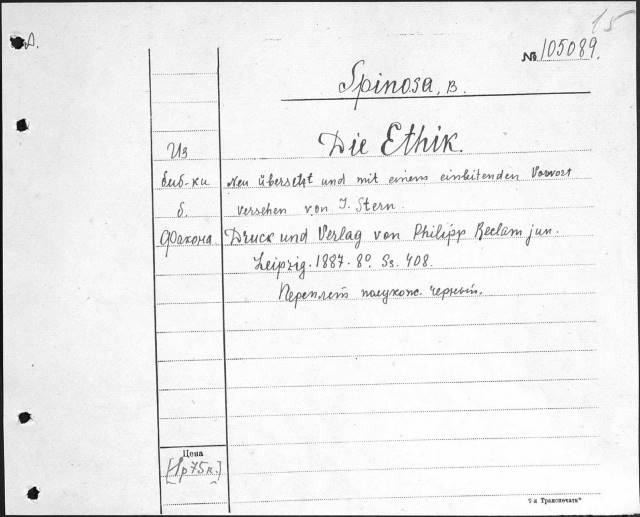 15
№ 105089.
Spinosa, B.
Die Ethik.
Из
биб-ки
б.
Фалкона.
Neu übersetzt und mit einem einleitenden Vorwort
versehen von J. Stern.
Druck und Verlag von Philipp Reclam jun.
Leipzig. 1887. 8° Ss. 408.
Переплет полукож. черный.
Цена
[1р75к.]
7-я Транспечать"